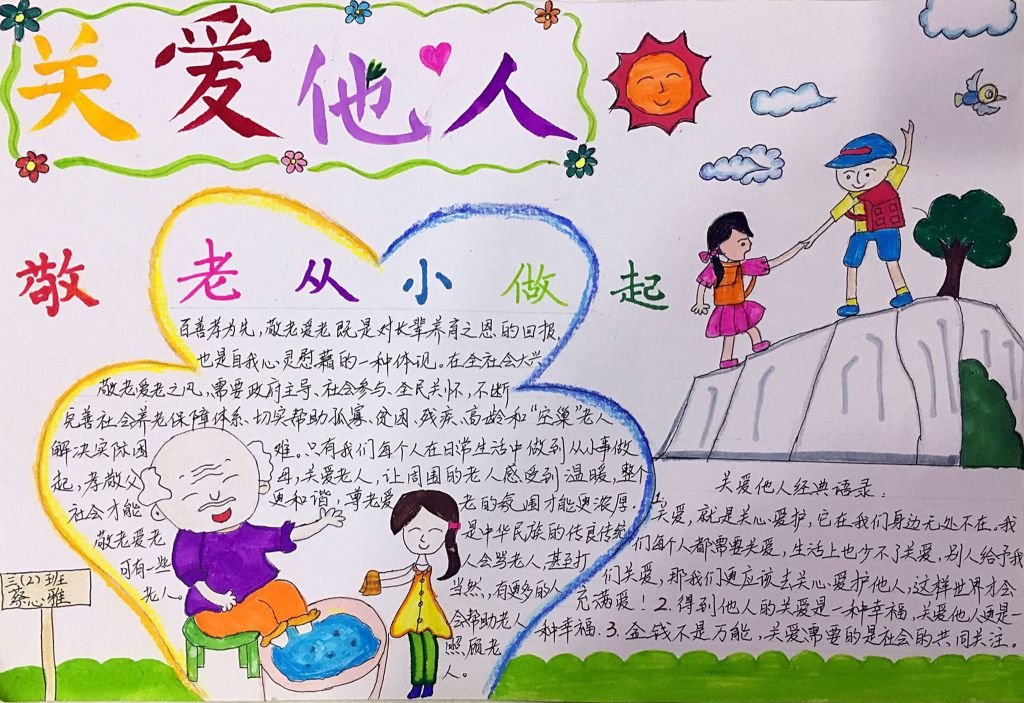 关爱他人
敬老从小做起
百善孝为先,敬老爱老既是对长辈养育之恩的回报,
也是自我心灵慰藉的一种体现。在全社会大兴
敬老爱老之风,需要政府主导、社会参与、全民关怀,不断
完善社会养老保障体系、切实帮助孤寡、贫困、残疾、高龄和“空巢”老人
解决实际困 难。只有我们每个人在日常生活中做到从小事做
起,孝敬父 母,关爱老人,让周围的老人感受到温暖,整个
社会才能 更和谐,尊老爱 老的氛围才能更浓厚.
敬老爱老 是中华民族的传良传统
可有一些 人会骂老人,甚至打
老人。 当然,有更多的人
会帮助老人
照顾老
人。
三(2)班
蔡心雅
关爱他人经典语录:
1.关爱,就是关心爱护,它在我们身边无处不在。我
们每个人都需要关爱,生活上也少不了关爱,别人给予我
们关爱,那我们更应该去关心.爱护他人,这样世界才会
充满爱!2.得到他人的关爱是一种幸福,关爱他人更是一
种幸福.3.金钱不是万能,关爱需要的是社会的共同关注。